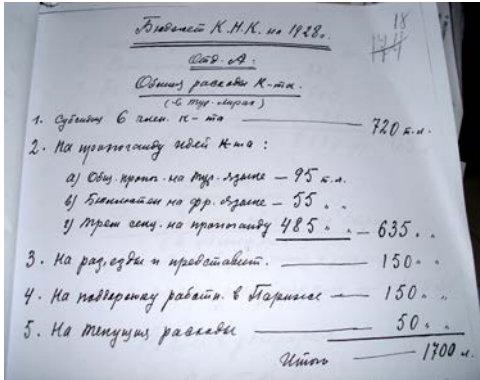 18
144
Бюджет К.Н.К. на 1928 г.
Отд. А:
Общия расходы К-та.
(в тур. лирах)
1. Субсидия 6 член. к-та — 720 т.л.
2. На пропоганду идей К-та:
а) Общ. пропог. на тур. языке — 95 т.л.
в) Бюллетен на фр. языке — 55 " "
г) Трем секц. на пропоганду 485 " " — 635 " "
3. На раз,езды и представит. — 150 " "
4. На поддержку работн. в Париже — 150 " "
5. На текущия расходы — 50 " "
Итого — 1700 л.